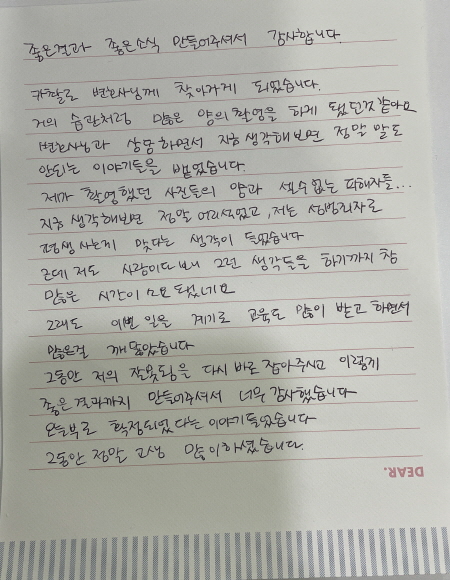 좋은결과 좋은소식 만들어주셔서 감사합니다.
카촬로 변호사님께 찾아가게 되었습니다.
거의 습관처럼 많은 양의 촬영을 하게 됐던것같아요
변호사님과 상담하면서 지금 생각해보면 정말 말도
안되는 이야기들을 뱉었습니다.
제가 촬영했던 사진들의 양과 셀수없는 피해자들...
지금 생각해보면 정말 어리석었고, 저는 성범죄자로
평생 사는게 맞다는 생각이 들었습니다
근데 저도 사람이다보니 그런 생각들을 하기까지 참
많은 시간이 소요됐네요
그래도 이번 일을 계기로 교육도 많이 받고 하면서
많은걸 깨달았습니다
그동안 저의 잘못됨을 다시 바로 잡아주시고 이렇게
좋은결과까지 만들어주셔서 너무 감사했습니다
오늘부로 확정되었다는 이야기들었습니다
그동안 정말 고생 많이하셨습니다.
DEAR.